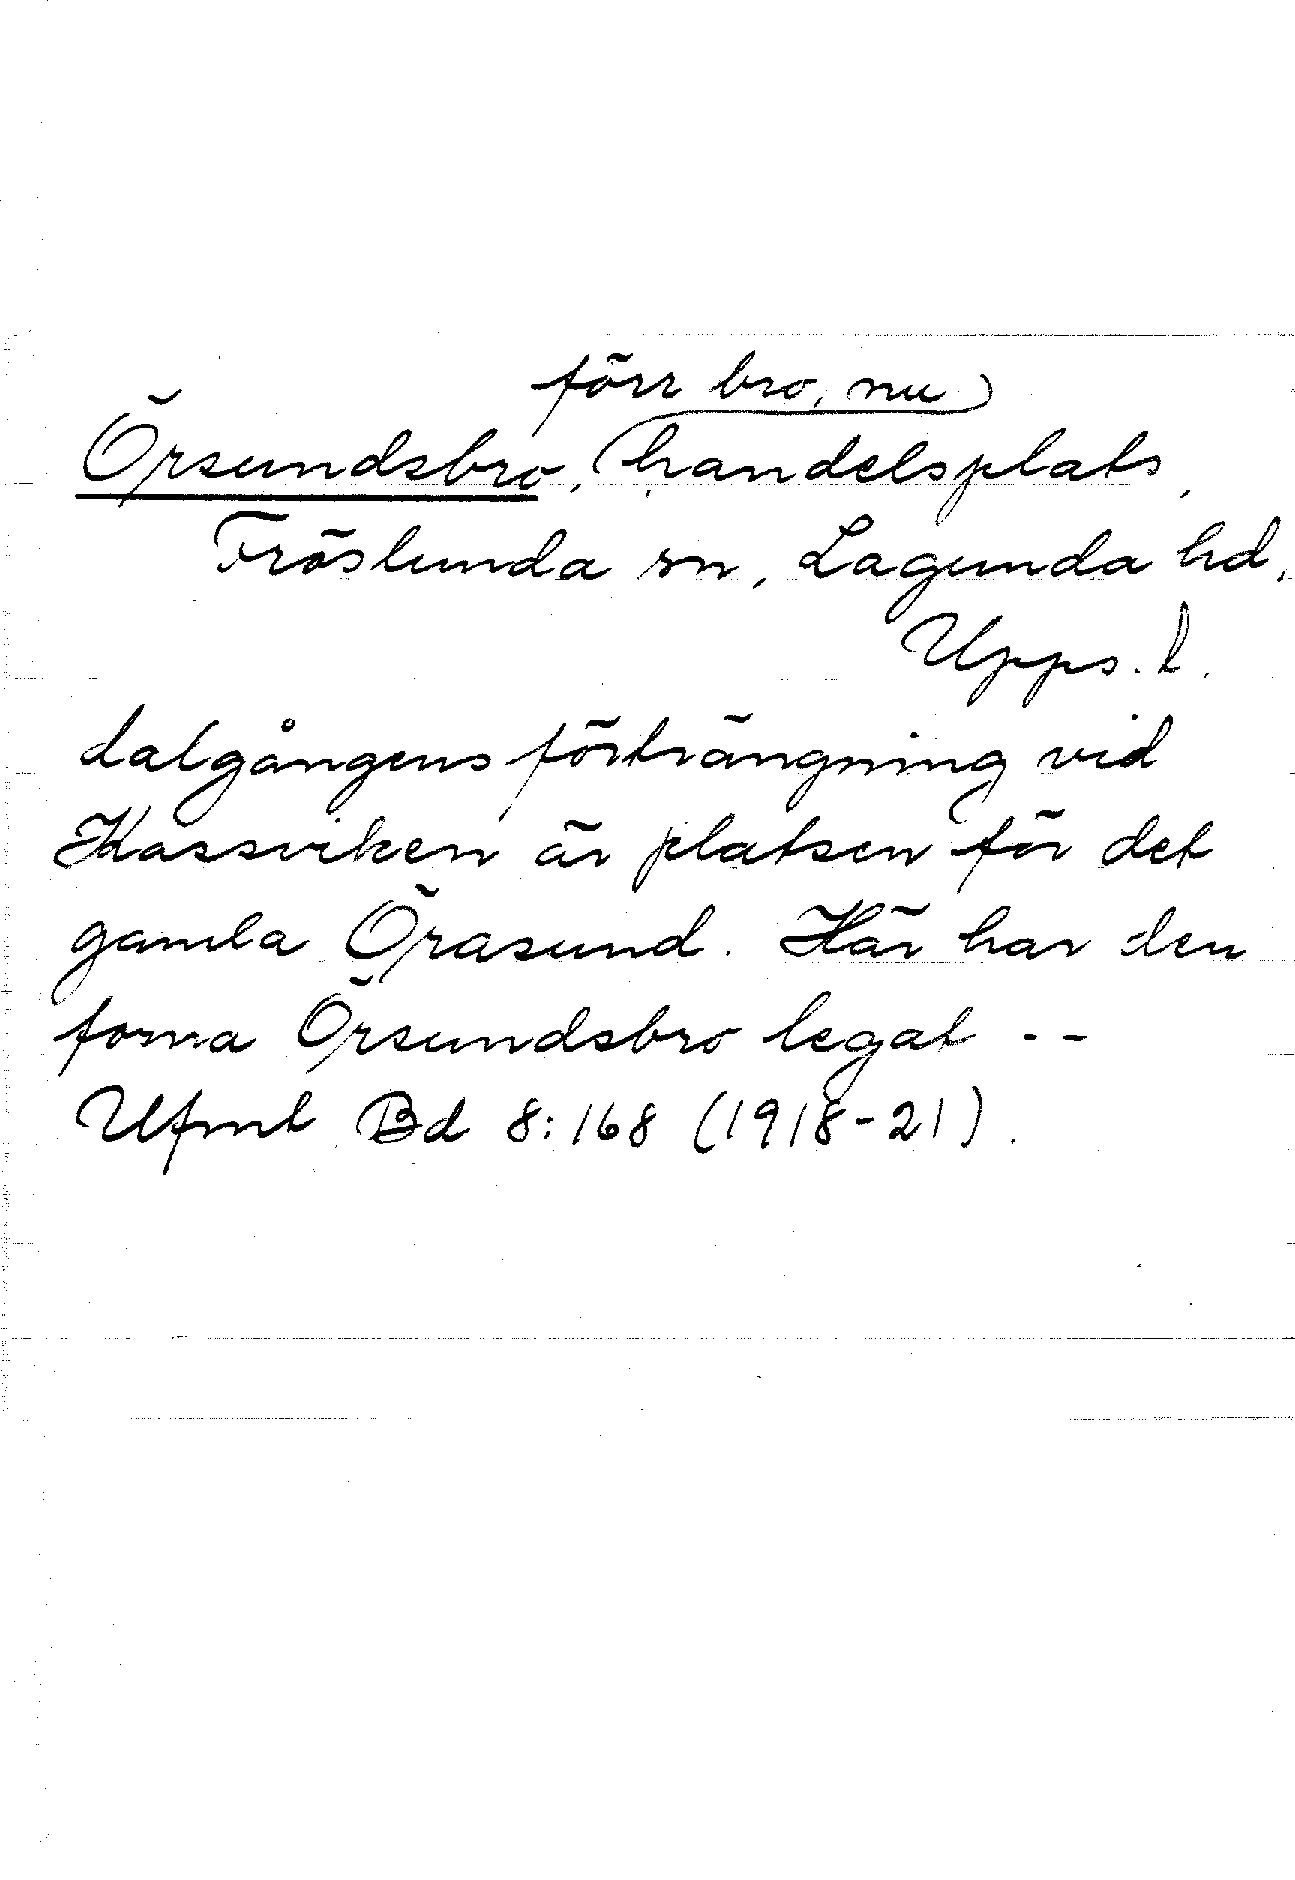 förr bro, nu
Örsundsbro, handelsplats,
Fröslunda sn, Lagunda hd,
Upps. l.
dalgångens förträngning vid
Kassviken är platsen för det
gamla Örasund. Här har den
forna Örsundsbro legat --
Ufmt Bd 8:168 (1918-21).